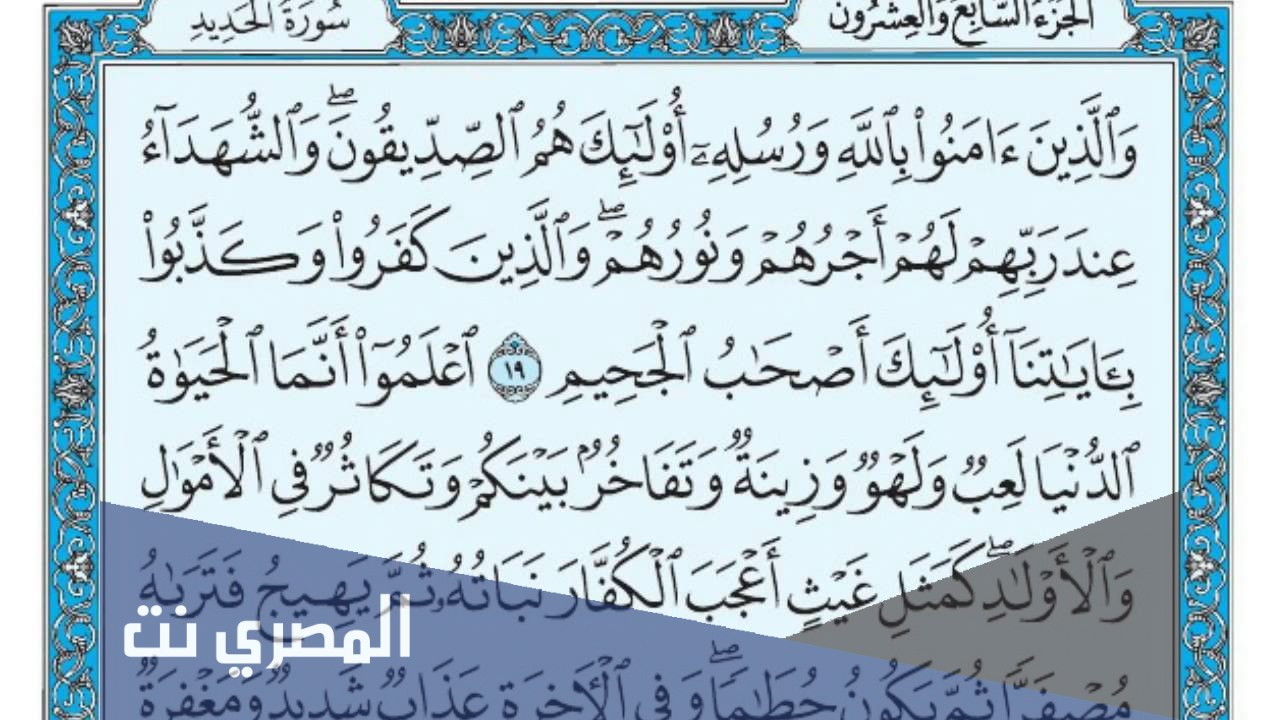 الجزء السابع والعشرون
سورة الحديد
وَٱلَّذِينَ ءَامَنُوا۟ بِٱللَّهِ وَرُسُلِهِۦٓ أُو۟لَـٰٓئِكَ هُمُ ٱلصِّدِّيقُونَ ۖ وَٱلشُّهَدَآءُ
عِندَ رَبِّهِمْ لَهُمْ أَجْرُهُمْ وَنُورُهُمْ ۖ وَٱلَّذِينَ كَفَرُوا۟ وَكَذَّبُوا۟
بِـَٔايَـٰتِنَآ أُو۟لَـٰٓئِكَ أَصْحَـٰبُ ٱلْجَحِيمِ ١٩ ٱعْلَمُوٓا۟ أَنَّمَا ٱلْحَيَوٰةُ
ٱلدُّنْيَا لَعِبٌ وَلَهْوٌ وَزِينَةٌ وَتَفَاخُرٌۢ بَيْنَكُمْ وَتَكَاثُرٌ فِى ٱلْأَمْوَٰلِ
وَٱلْأَوْلَـٰدِ ۖ كَمَثَلِ غَيْثٍ أَعْجَبَ ٱلْكُفَّارَ نَبَاتُهُۥ ثُمَّ يَهِيجُ فَتَرَىٰهُ
مُصْفَرًّا ثُمَّ يَكُونُ حُطَـٰمًا ۖ وَفِى ٱلْـَٔاخِرَةِ عَذَابٌ شَدِيدٌ وَمَغْفِرَةٌ
المصري نت